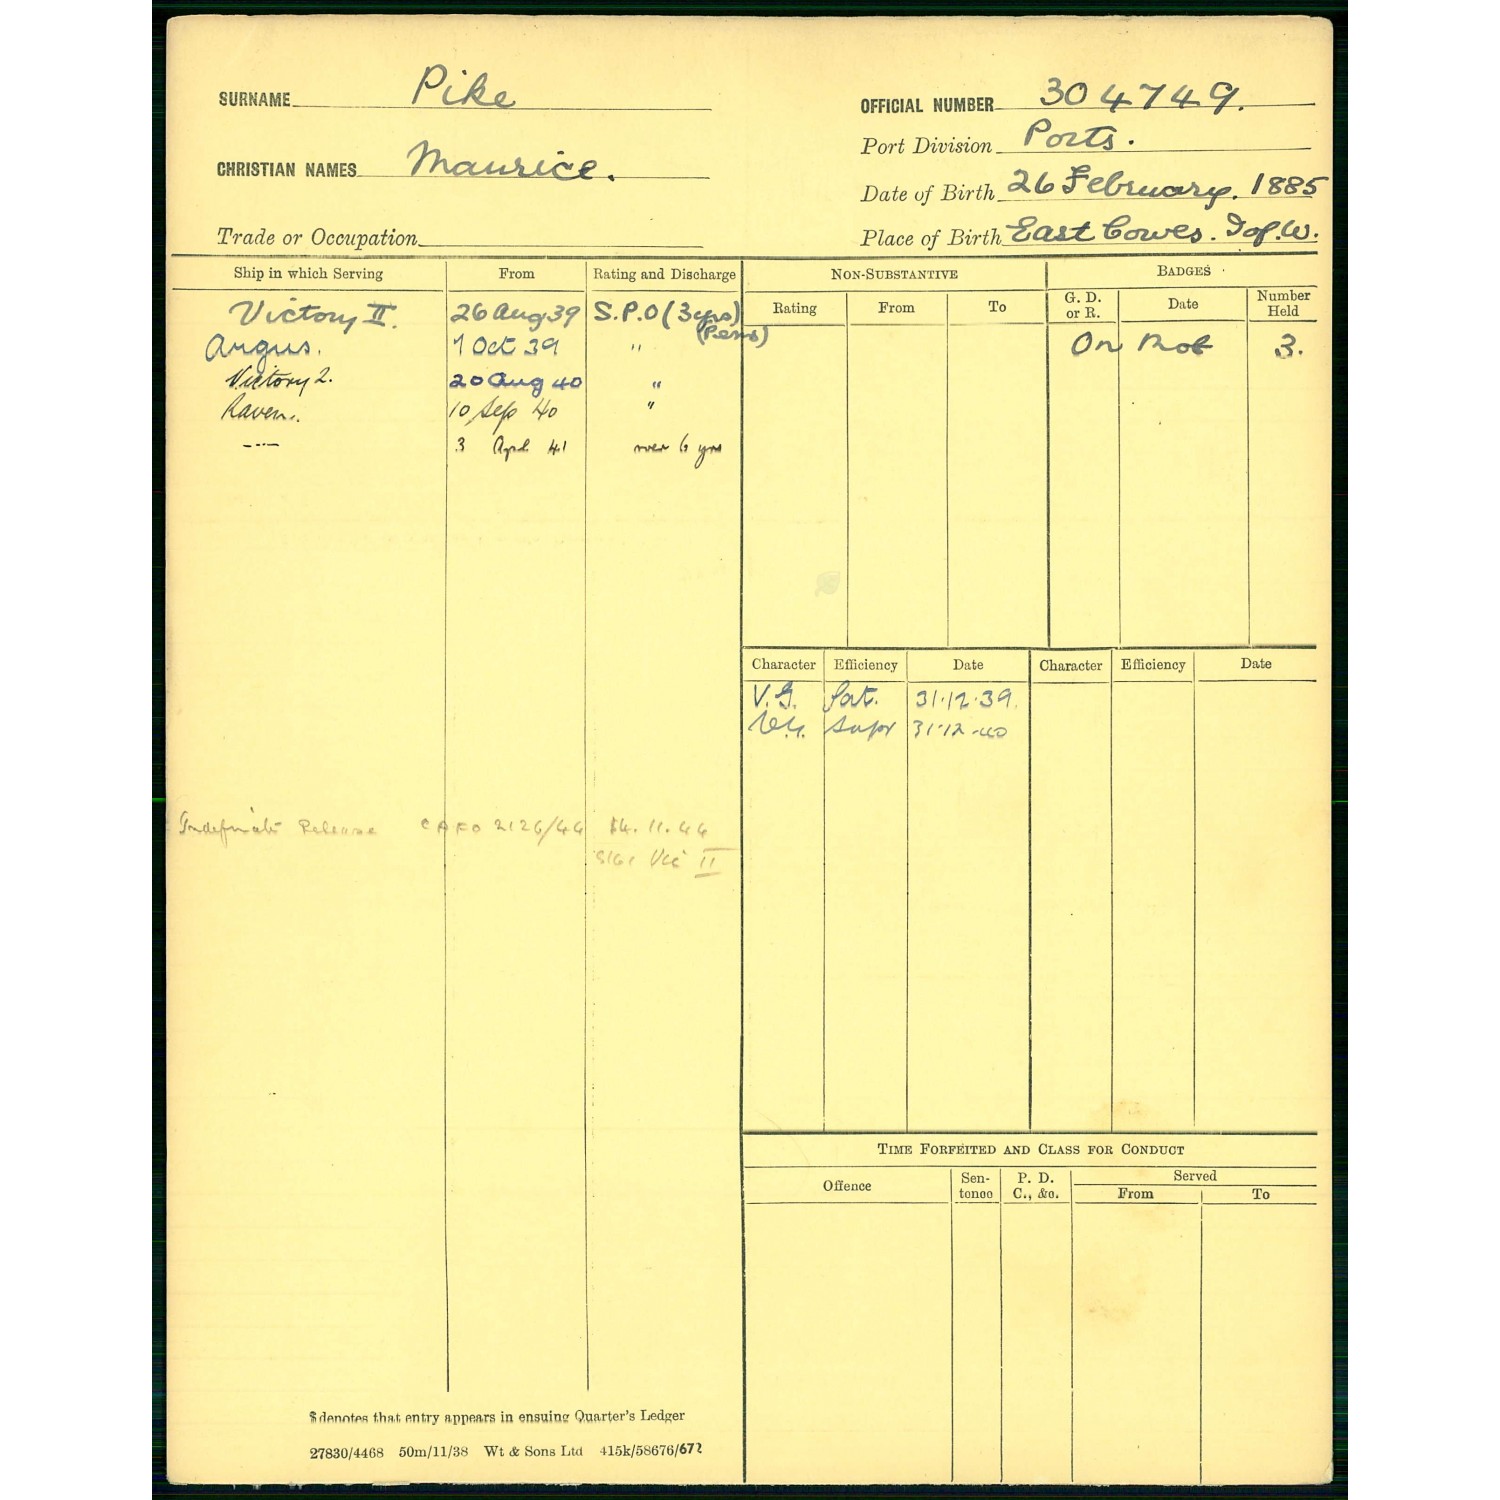 SURNAME Pike
CHRISTIAN NAMES Maurice.
Trade or Occupation
OFFICIAL NUMBER 304749.
Port Division Ports.
Date of Birth 26 February. 1885
Place of Birth East Cowes. I of. W.
Ship in which Serving From Rating and Discharge
Victory II. 26 Aug 39 S.P.O (3 yrs)
(Pens)
Argus. 1 Oct 39 "
Victory 2. 20 Aug 40 "
Raven. 10 Sep 40 "
---- 3 Apl 41 over 6 yrs
Indefinite Release CAFO 2126/44 14.11.44
Vic II
$ denotes that entry appears in ensuing Quarter's Ledger
27830/4468 50m/11/38 Wt & Sons Ltd 415k/58676/672
NON-SUBSTANTIVE
Rating From To
BADGES
G. D. or R. Date Number Held
On Mob 3.
Character Efficiency Date Character Efficiency Date
V.G. Sat. 31.12.39.
V.G. Supr 31.12.40
TIME FORFEITED AND CLASS FOR CONDUCT
Offence Sentence P. D. C., &c. Served
From To